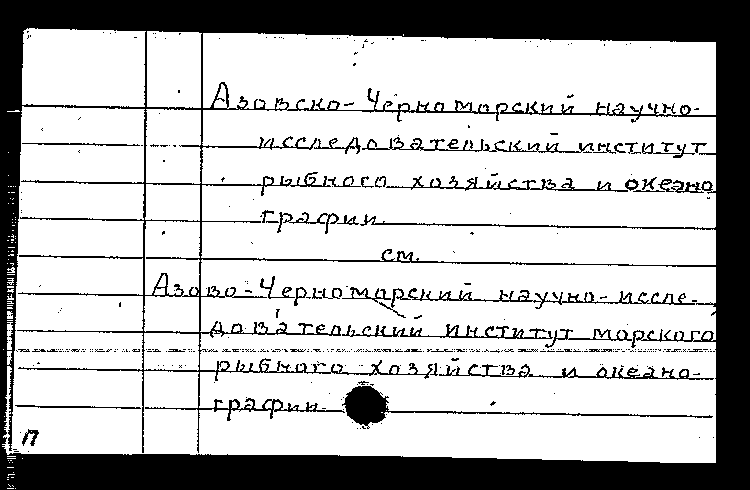 Азовско-Черноморский научно-
исследовательский институт
рыбного хозяйства и океано
графии.
см.
Азово-Черноморский научно-иссле-
довательский институт морского
рыбного хозяйства и океано-
графии.
17